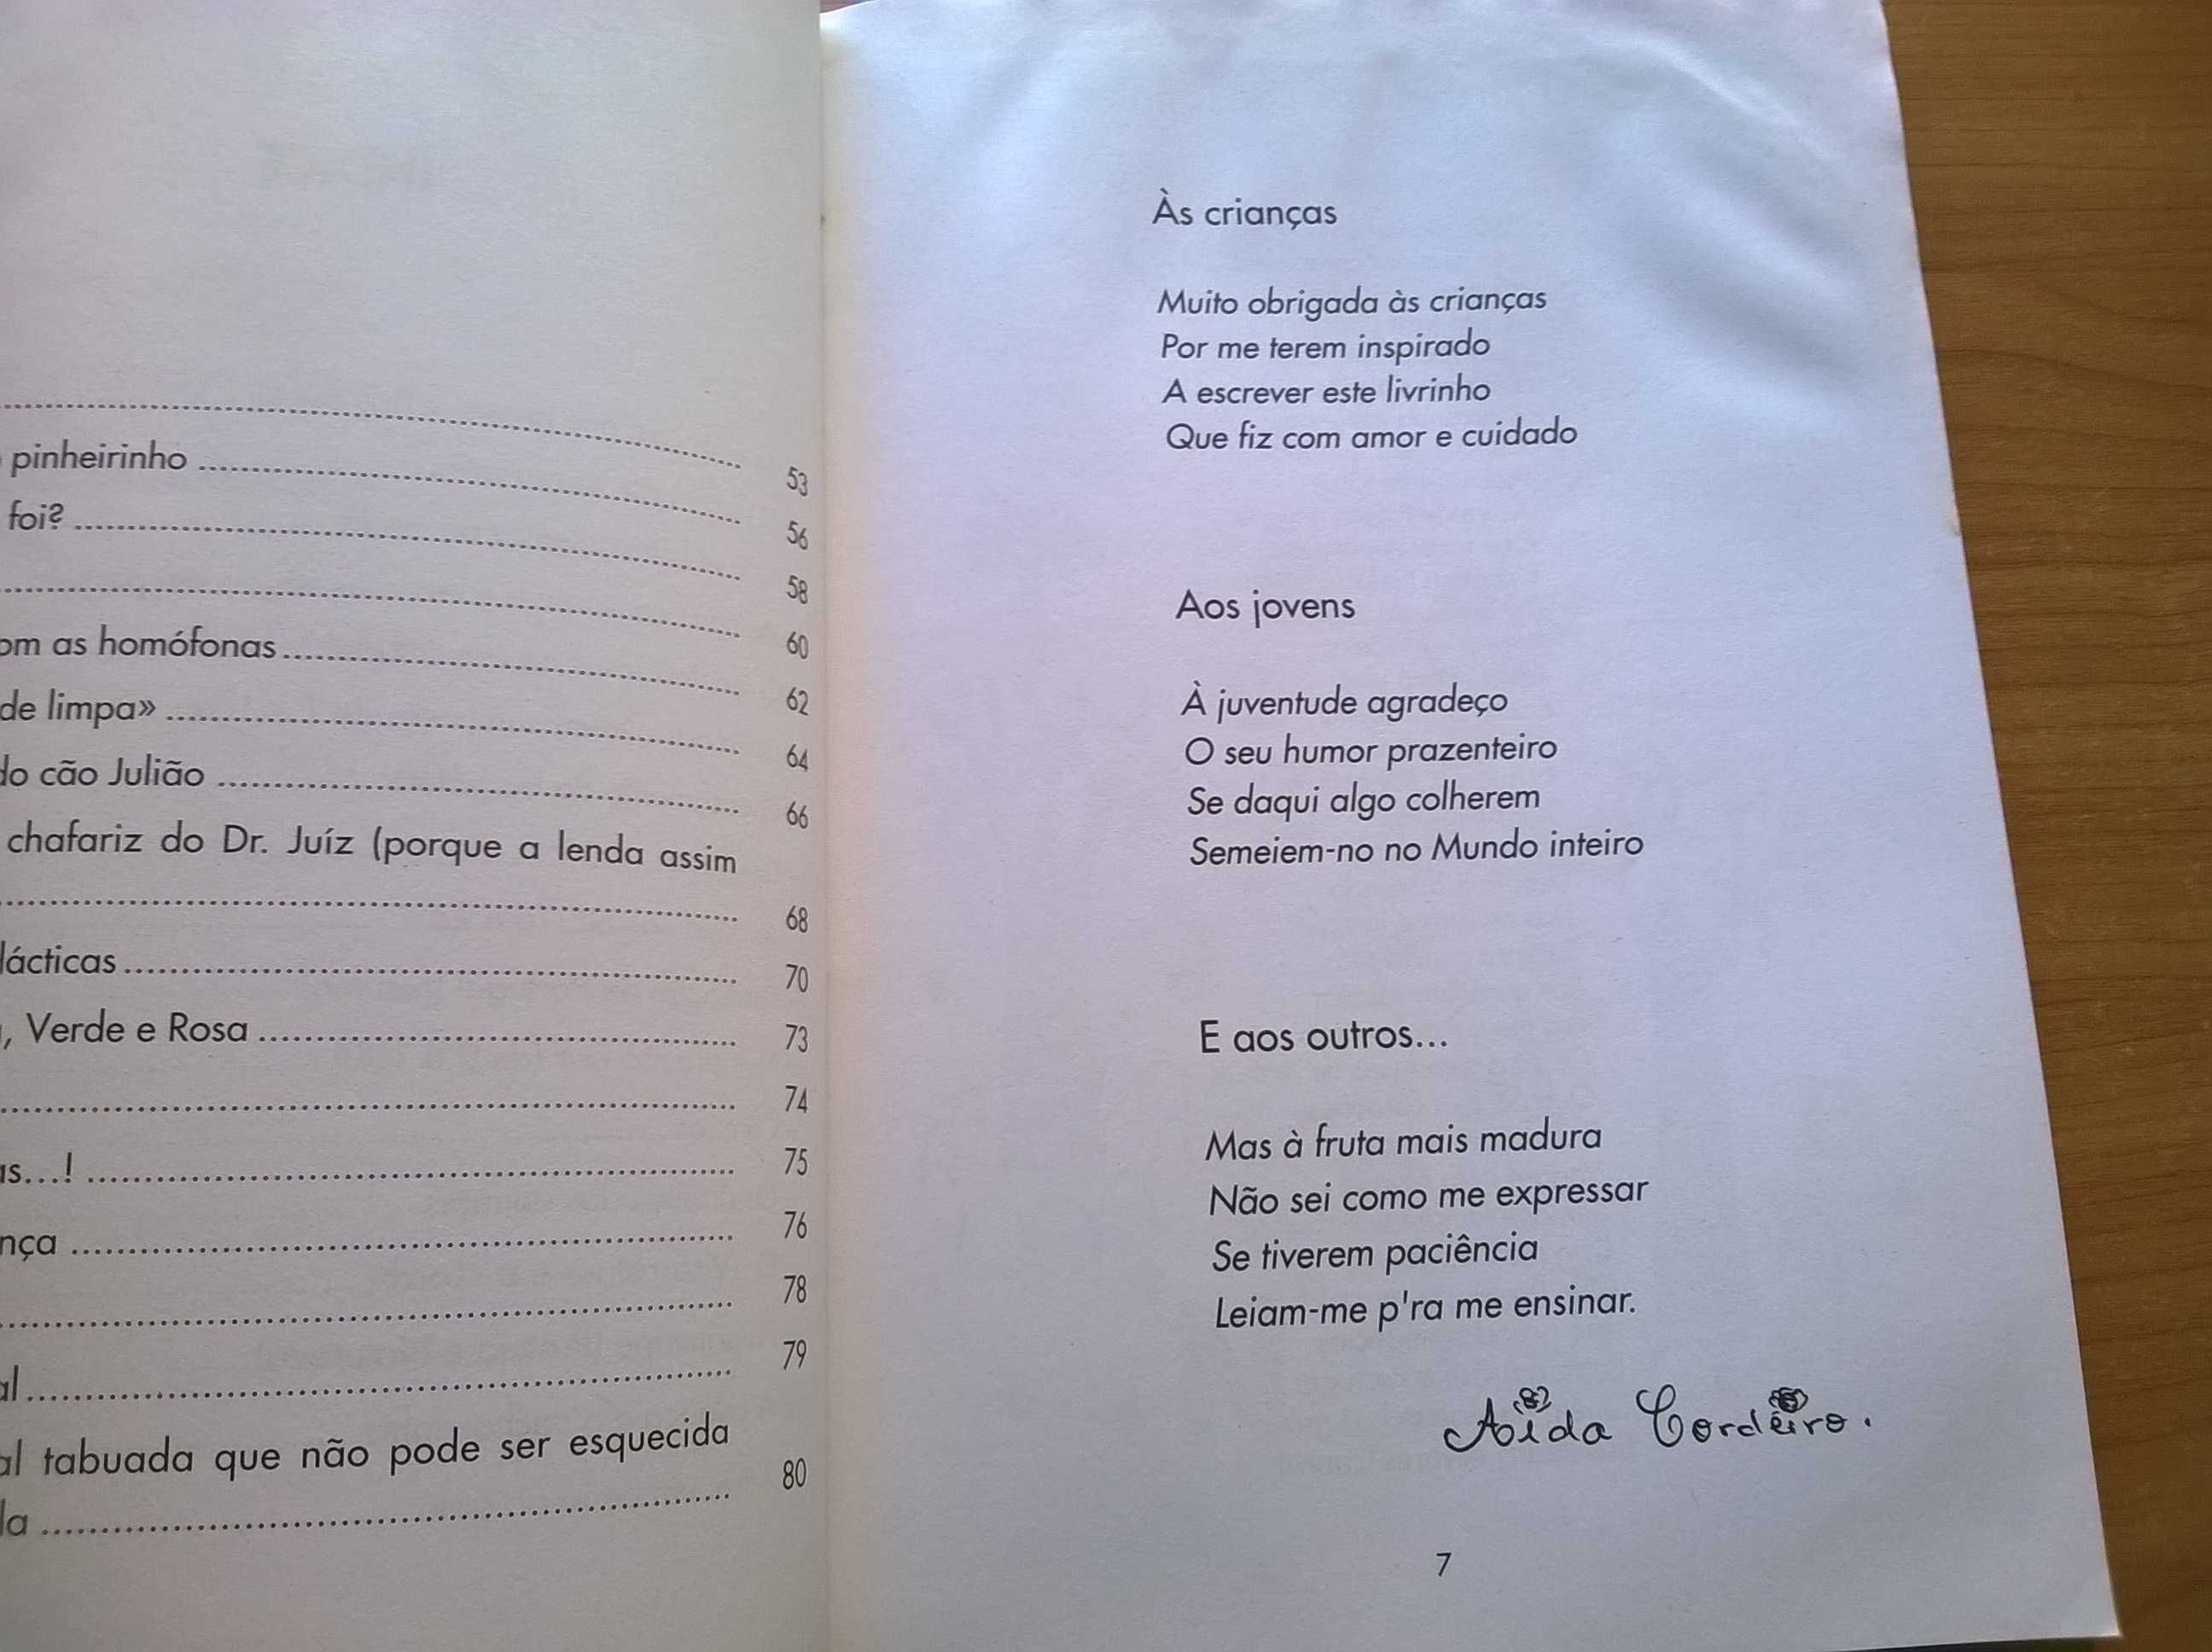 53
pinheirinho 56
foi? 58
60
as homófonas 62
de limpa» 64
do cão Julião 66
chafariz do Dr. Juíz (porque a lenda assim
68
70
, Verde e Rosa 73
74
...! 75
76
78
79
tabuada que não pode ser esquecida
80
Às crianças
Muito obrigada às crianças
Por me terem inspirado
A escrever este livrinho
Que fiz com amor e cuidado
Aos jovens
À juventude agradeço
O seu humor prazenteiro
Se daqui algo colherem
Semeiem-no no Mundo inteiro
E aos outros...
Mas à fruta mais madura
Não sei como me expressar
Se tiverem paciência
Leiam-me p'ra me ensinar.
Aida Cordeiro.
7